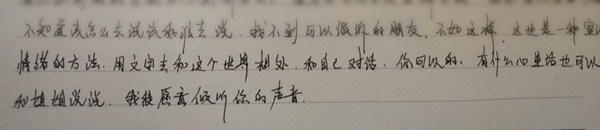 不知道该怎么去说该和谁去说．找不到可以倾听的朋友．不如这样．这也是一种宣泄
情绪的方法．用文字去和这个世界相处．和自己对话．你可以的．有什么心里话也可以
和姐姐说说．我很愿意倾听你的声音．